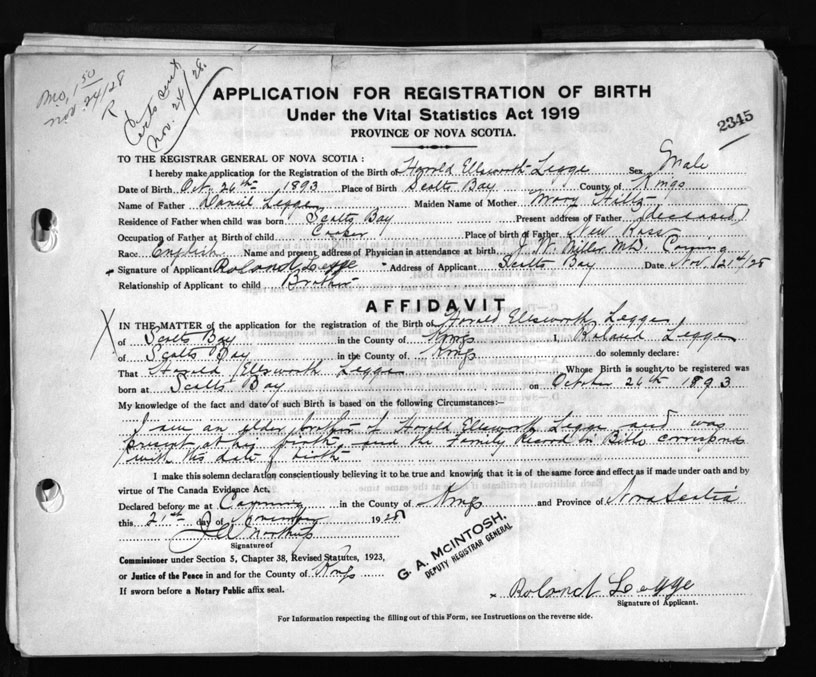 Mo, 1.50
Nov. 24/28
R
Certs sent
Nov. 24/28.
APPLICATION FOR REGISTRATION OF BIRTH
Under the Vital Statistics Act 1919
PROVINCE OF NOVA SCOTIA.
2345
TO THE REGISTRAR GENERAL OF NOVA SCOTIA:
I hereby make application for the Registration of the Birth of Harold Ellsworth Legge Sex Male
Date of Birth Oct. 26th 1893 Place of Birth Scotts Bay County of Kings
Name of Father Daniel Legge Maiden Name of Mother Mary Hiltz
Residence of Father when child was born Scotts Bay Present address of Father (deceased)
Occupation of Father at Birth of child Cooper Place of birth of Father New Ross
Race English Name and present address of Physician in attendance at birth J. W. Miller M.D. Canning
Signature of Applicant Roland Legge Address of Applicant Scotts Bay Date Nov. 21st/28
Relationship of Applicant to child Brother
AFFIDAVIT
IN THE MATTER of the application for the registration of the Birth of Harold Ellsworth Legge
of Scotts Bay in the County of Kings I, Roland Legge
of Scotts Bay in the County of Kings do solemnly declare:
That Harold Ellsworth Legge Whose Birth is sought to be registered was
born at Scotts Bay on October 26th 1893
My knowledge of the fact and date of such Birth is based on the following Circumstances:—
I am an elder brother of Harold Ellsworth Legge and was
present at his birth, and the Family Record in Bible corresponds
with this date of birth
I make this solemn declaration conscientiously believing it to be true and knowing that it is of the same force and effect as if made under oath and by
virtue of The Canada Evidence Act.
Declared before me at Canning in the County of Kings and Province of Nova Scotia
this 21st day of November 1928
Signature of
Commissioner under Section 5, Chapter 38, Revised Statutes, 1923,
or Justice of the Peace in and for the County of Kings
If sworn before a Notary Public affix seal.
G. A. McINTOSH,
DEPUTY REGISTRAR GENERAL
Roland Legge
Signature of Applicant.
For Information respecting the filling out of this Form, see Instructions on the reverse side.